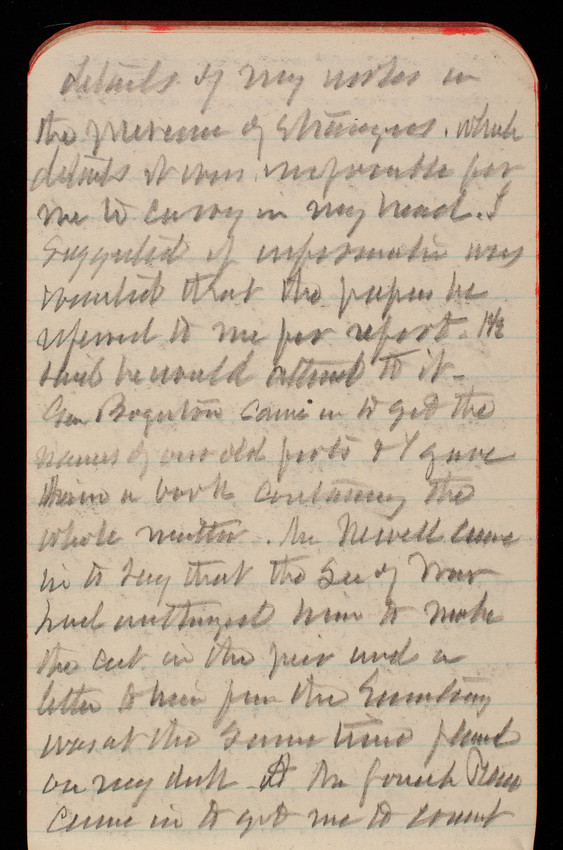 details of my notes in
the presence of strangers. which
details it was impossible for
me to carry in my head. I
suggested if information was
wanted that the papers be
referred to me for report. He
said he would attend to it -
Gen came in to get the
names of our old forts & I gave
him a book containing the
whole matter. Mr Newell came
in to say that the Sec of War
had authorized him to make
the cut in the pier and a
letter to him from the Secretary
was at the same time placed
on my desk. Mr
came in to get me to